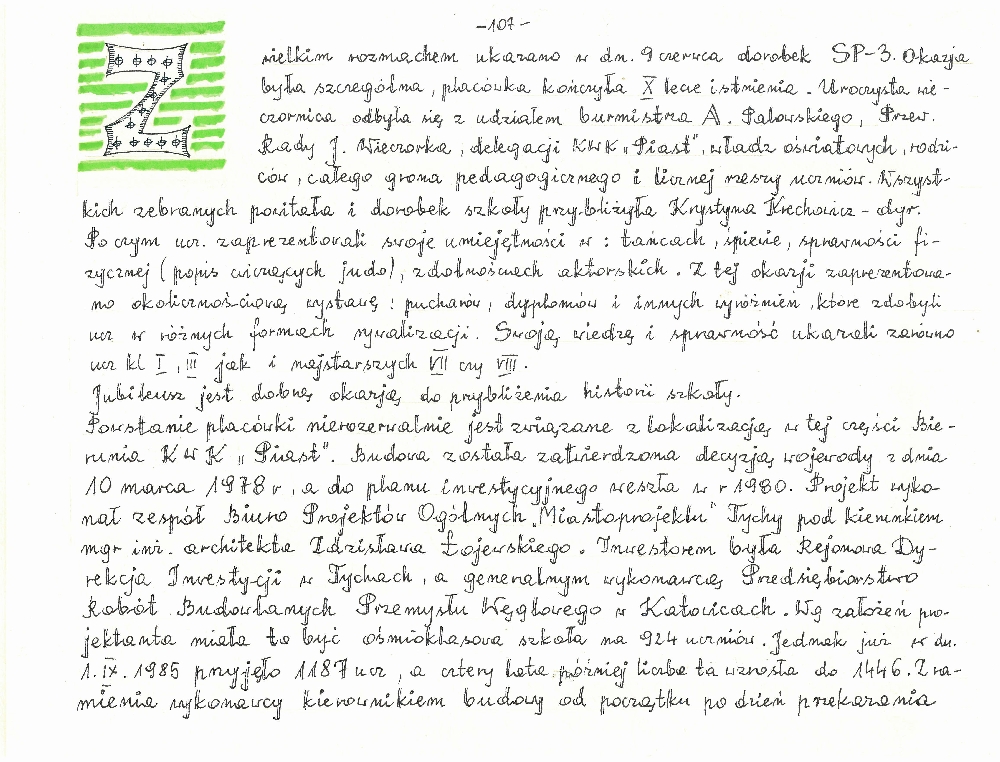 -107-
Z wielkim rozmachem ukazano w dn. 9 czerwca dorobek SP-3. Okazja
była szczególna, placówka kończyła X lecie istnienia. Uroczysta wie-
czornica odbyła się z udziałem burmistrza A. Palowskiego, Przew.
Rady J. Wieczorka, delegacji KWK "Piast", władz oświatowych, rodzi-
ców, całego grona pedagogicznego i licznej rzeszy uczniów. Wszyst-
kich zebranych powitała i dorobek szkoły przybliżyła Krystyna Krechowicz - dyr.
Po czym ucz. zaprezentowali swoje umiejętności w: tańcach, śpiewie, sprawności fi-
zycznej (popis ćwiczących judo), zdolnościach aktorskich. Z tej okazji zaprezentowa-
no okolicznościową wystawę: pucharów, dyplomów i innych wyróżnień, które zdobyli
ucz w różnych formach rywalizacji. Swoją wiedzę i sprawność ukazali zarówno
ucz kl I, III jak i najstarszych VII czy VIII.
Jubileusz jest dobrą okazją do przybliżenia historii szkoły.
Powstanie placówki nierozerwalnie jest związane z lokalizacją w tej części Bie-
runia KWK "Piast". Budowa została zatwierdzona decyzją wojewody z dnia
10 marca 1978 r, a do planu inwestycyjnego weszła w r 1980. Projekt wyko-
nał zespół Biuro Projektów Ogólnych "Miastoprojektu" Tychy pod kierunkiem
mgr inż. architekta Zdzisława Łojewskiego. Inwestorem była Rejonowa Dy-
rekcja Inwestycji w Tychach, a generalnym wykonawcą Przedsiębiorstwo
Robót Budowlanych Przemysłu Węglowego w Katowicach. Wg założeń pro-
jektanta miała to być ośmioklasowa szkoła na 924 uczniów. Jednak już w dn.
1.IX.1985 przyjęto 1187 ucz, a cztery lata później liczba ta wzrosła do 1446. Z ra-
mienia wykonawcy kierownikiem budowy od początku po dzień przekazania